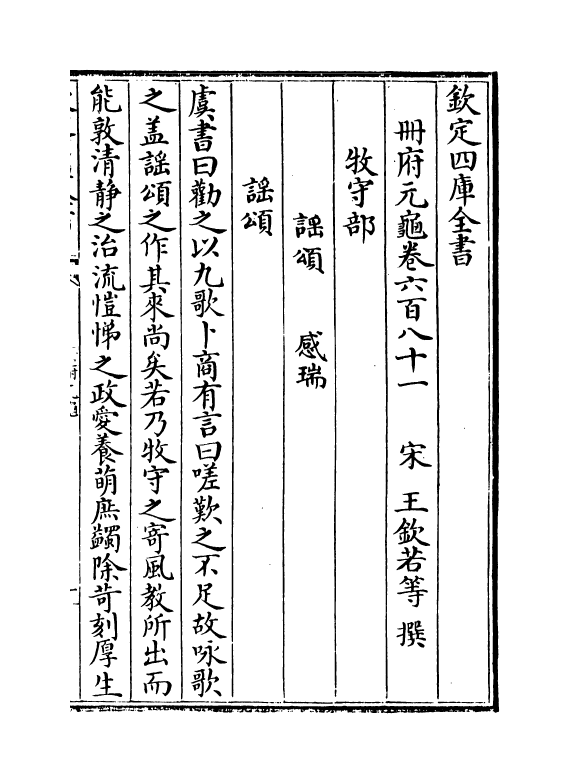 欽定四庫全書
冊府元龜卷六百八十一　宋　王欽若等　撰
牧守部
謡頌　感瑞
謡頌
虞書曰勸之以九歌卜商有言曰嗟歎之不足故咏歌
之盖謡頌之作其來尚矣若乃牧守之寄風教所出而
能敦清静之治流愷悌之政愛養萌庶蠲除苛刻厚生